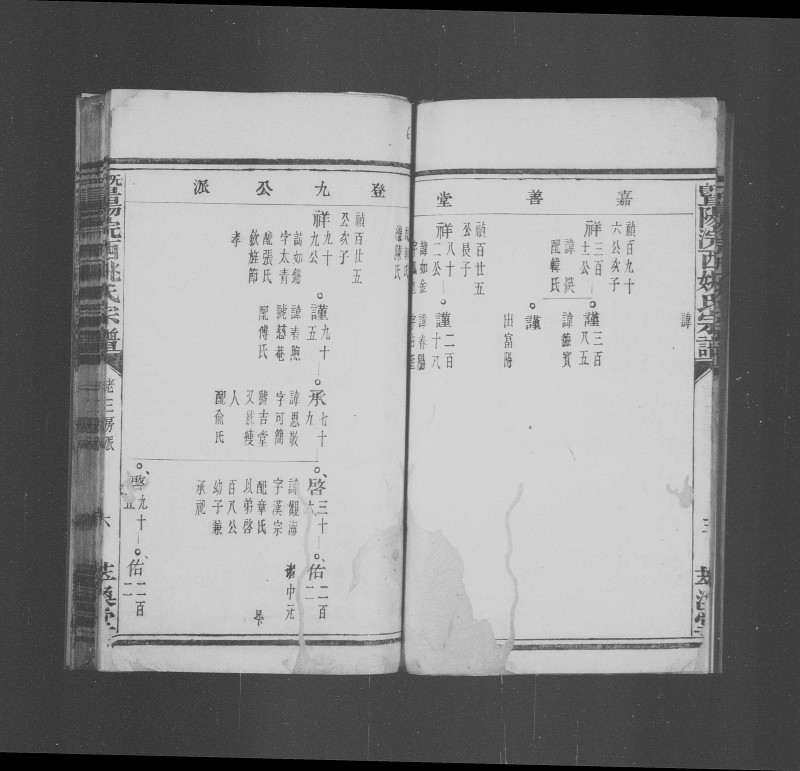 暨陽浣西姚氏宗譜
三
嘉善堂
諱
禎百九十
六公亥子
祥三百
諱
配韓氏
謹三百
八五
諱
謹
出富陽
禎百廿五
公長子
祥八十
二公
諱如金
謹二百
十八
諱春陽
登九公派
禎百廿五
公亥子
祥九十
九公
諱如錫
字太青
配張氏
欽旌節
孝
謹九十
五
諱春熙
號慈菴
配傅氏
承七十
九
諱思敬
字可簡
號吉堂
又號瘦
人
配俞氏
啓三十
六
諱觀海
字漢宗
配章氏
以弟啓
百八公
幼子兼
承祀
佑二百
二
諱中元
啓九十
五
佑二百
二
暨陽浣西姚氏宗譜
老三房派
六